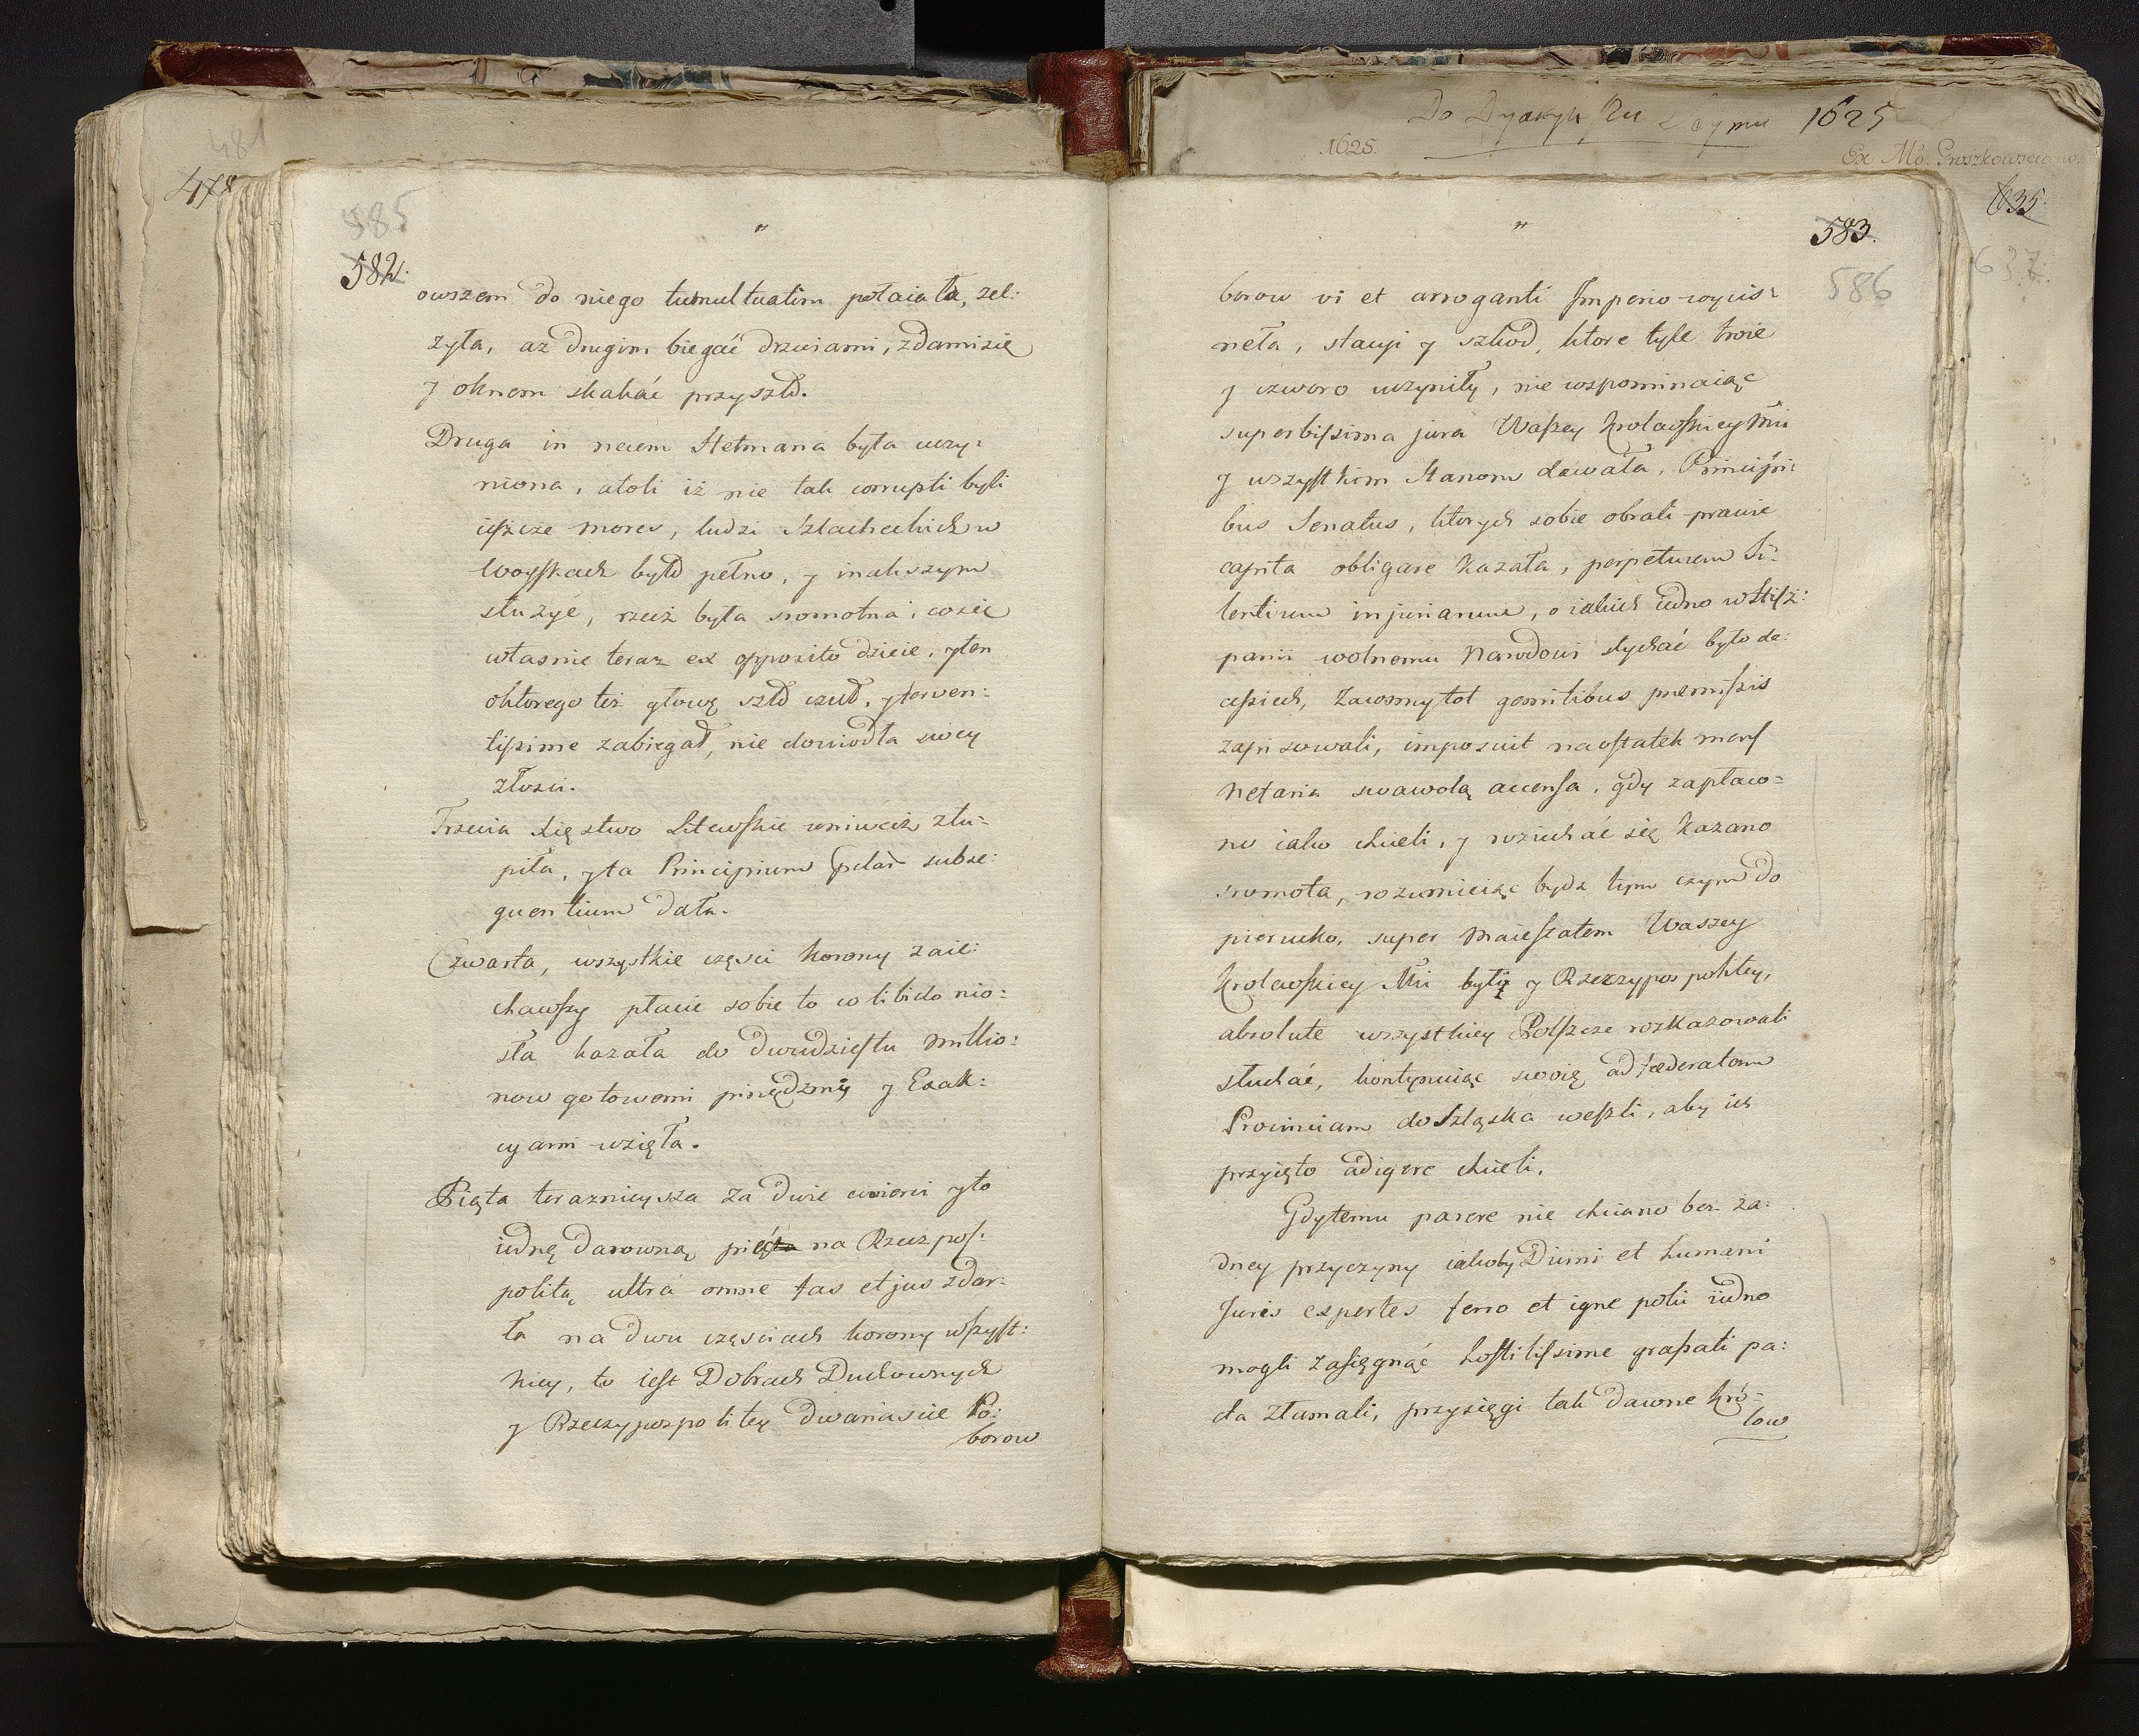 481
478
585
582.
"
owszem do niego tumultuatim połaiała, zel:
zyła, az drugim biegać drzwiami, zdamisię
y oknem skakać przyszło.
Druga in necem Hetmana była uczy:
niona, atoli iż nie tak corrupti byli
ieszcze mores, ludzi Szlacheckich w
Woyskach było pełno, y inakszym
służyć, rzecz była sromotna, co się
własnie teraz ex opposito dzieie, y ten
októrego też głowę szło czuł, y
tissime zabiegał, nie dowiodła swey
złosci.
Trzecia Xięstwo Litewskie wniwecz złu:
piła, y ta Principium subse:
quentium dała.
Czwarta, wszystkie częsci Korony zaie:
chawszy płacić sobie to co libido nio:
sła kazała do dwudziestu Millio:
now gotowemi pieniędzmi y Exak:
cyami wzięła.
Piąta teraznieysza za dwie cwierci y to
iednę darowną na Rzeczpos:
politą ultra omne fas et jus zdar:
ła na dwu częsciach Korony wszyst:
kiey, to iest Dobrach Duchownych
y Rzeczypospolitey dwanascie Po:
borow
Do Dyaryuszu Seymu 1625
1625.
Ex Mo. Proszkowsciano.
635.
637.
"
583.
586
borow vi et arroganti Imperio wycis:
neła, stacyi y szkod, ktore tyle troie
y czworo uczyniły, nie wspominaiąc
superbissima jura Waszey Krolewskiey Mci
y wszystkim Stanom dawała, Principi:
bus Senatus, ktorych sobie obrali prawie
capita obligare kazała, perpetuum Si:
lentium injuriarum, o iakich iedno w Hisz:
panii wolnemu Narodowi słychać było de:
cessiech, tot gemitibus premissis
zapisowali, imposuit naostatek mens
Nefaria swawolą accensa, gdy zapłaco:
no iako chcieli, y roziechać się kazano
sromota, rozumieiąc bydz tym czym do
piero, super Maiestatem Waszey
Krolewskiey Mci byli y Rzeczypospolitey,
absolute wszystkiey Polszcze rozkazowali
słuchać, kontynuiąc swoię ad fæderatam
Prouinciam do Szląska weszli, aby ich
przyięto adigere chcieli.
Gdy temu parere nie chciano bez ża:
dney przyczyny iakoby Diuini et humani
Juris expertes ferro et igne poki iedno
mogli zasięgnąć hostilissime grassati pa:
cta złamali, przysięgi tak dawne Kró:
low